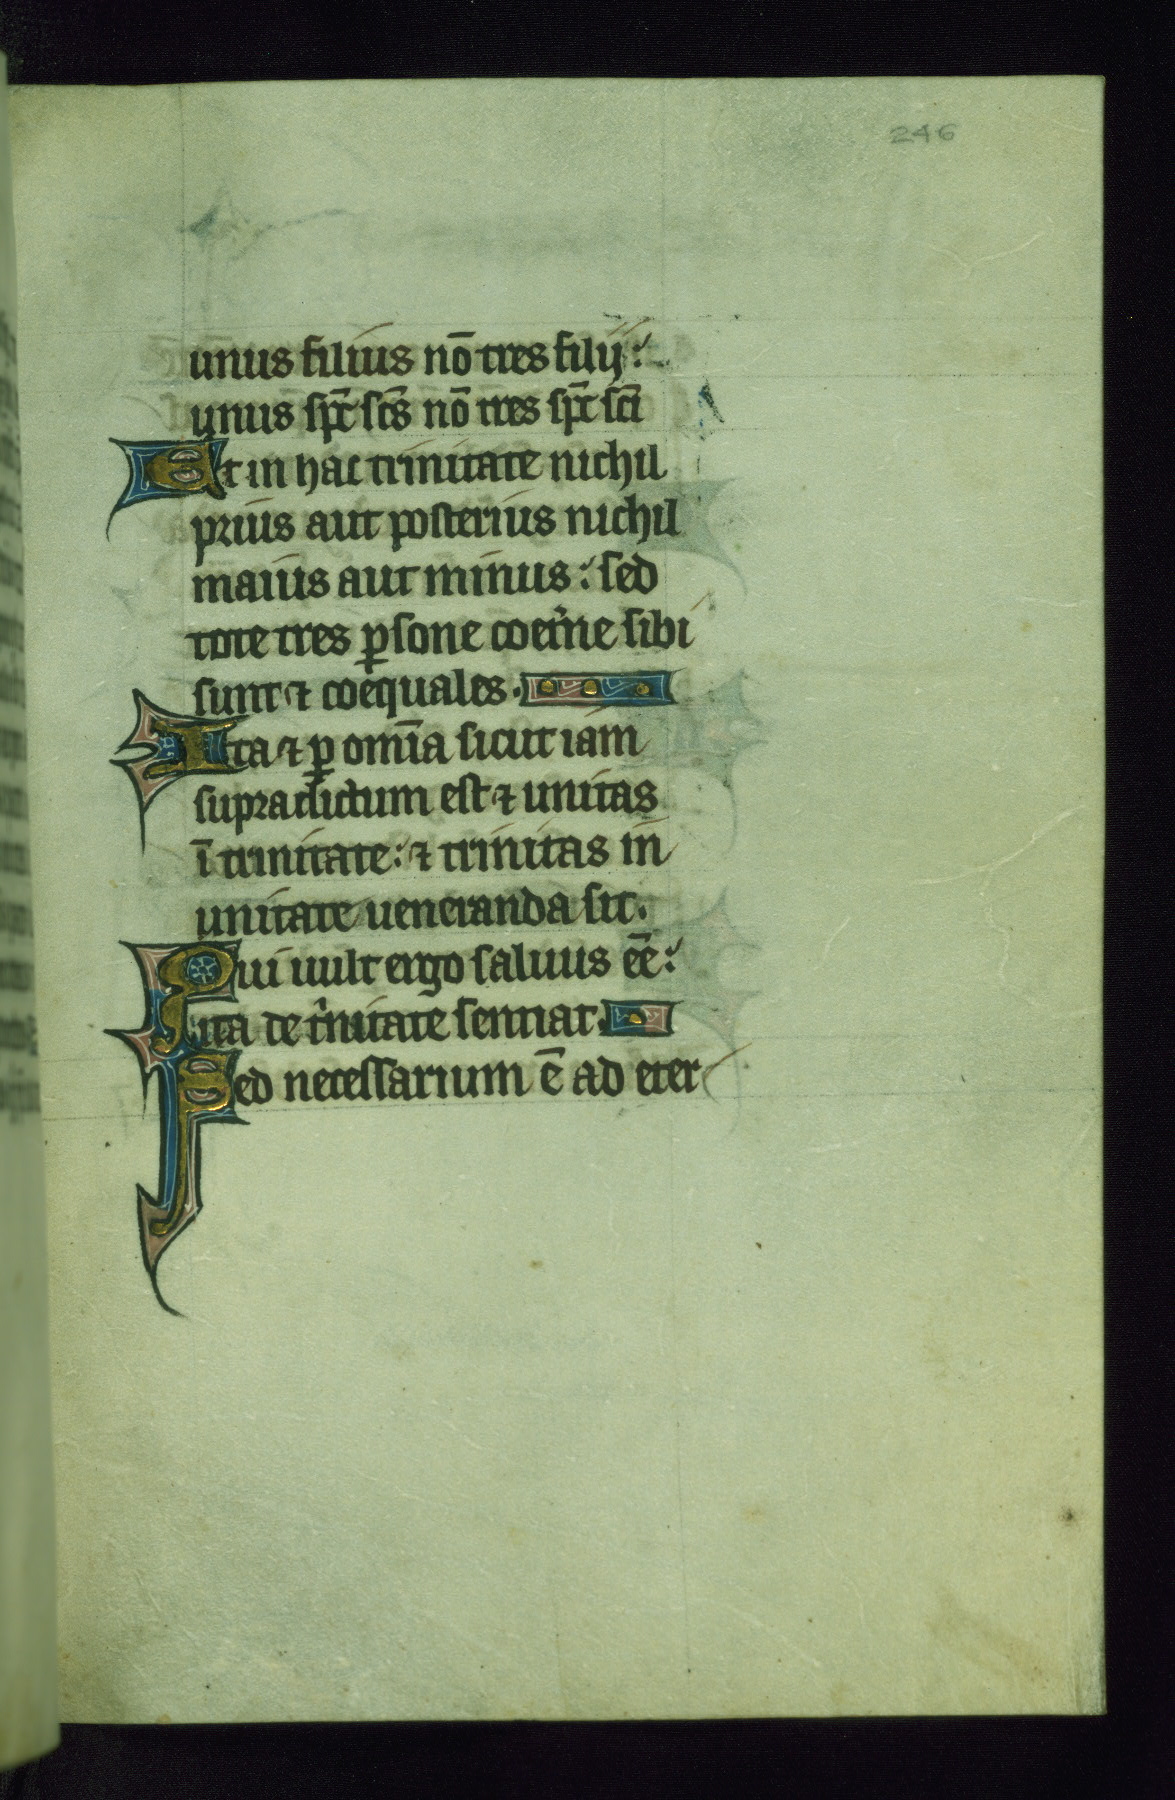 246
unus filius nō tres filij:
unus sp̄c sc̄s nō tres sp̄c sc̄i
Et in hac trinitate nichil
prius aut posterius nichil
maius aut minus: sed
tote tres ꝑsone coet'ne sibi
sunt ⁊ coequales.
Ita ⁊ ꝑ omīa sicut iam
supradictum est ⁊ unitas
ī trinitate: ⁊ trinitas in
unitate ueneranda sit.
Qui uult ergo saluus eē:
ita de t'nitate sentiat.
Sed necessarium ē ad eter